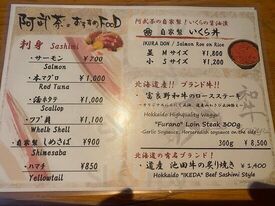 阿武茶のおすすめFOOD
刺身 Sashimi
・サーモン ¥700
Salmon
・本マグロ ¥1,000
Red Tuna
・活ホタテ
Scallop
・ツブ貝 ¥1,100
Whelk Shell
・自家製しめさば ¥900
Shimesaba
・ハマチ ¥850
Yellowtail
阿武茶の自家製!いくらの醤油漬
自家製 いくら丼
IKURA DON / Salmon Roe on Rice
並 M サイズ ¥1,800
S サイズ ¥1,300
北海道産!! ブランド牛!!
・富良野和牛のロースステーキ
Hokkaido Highquality Wagyu!
"Furano" Loin Steak 300g
300g ¥ 8,500
北海道の有名ブランド!
・道産 池田牛の炙り焼き ¥1,400
Hokkaido "IKEDA" Beef Sashimi Style